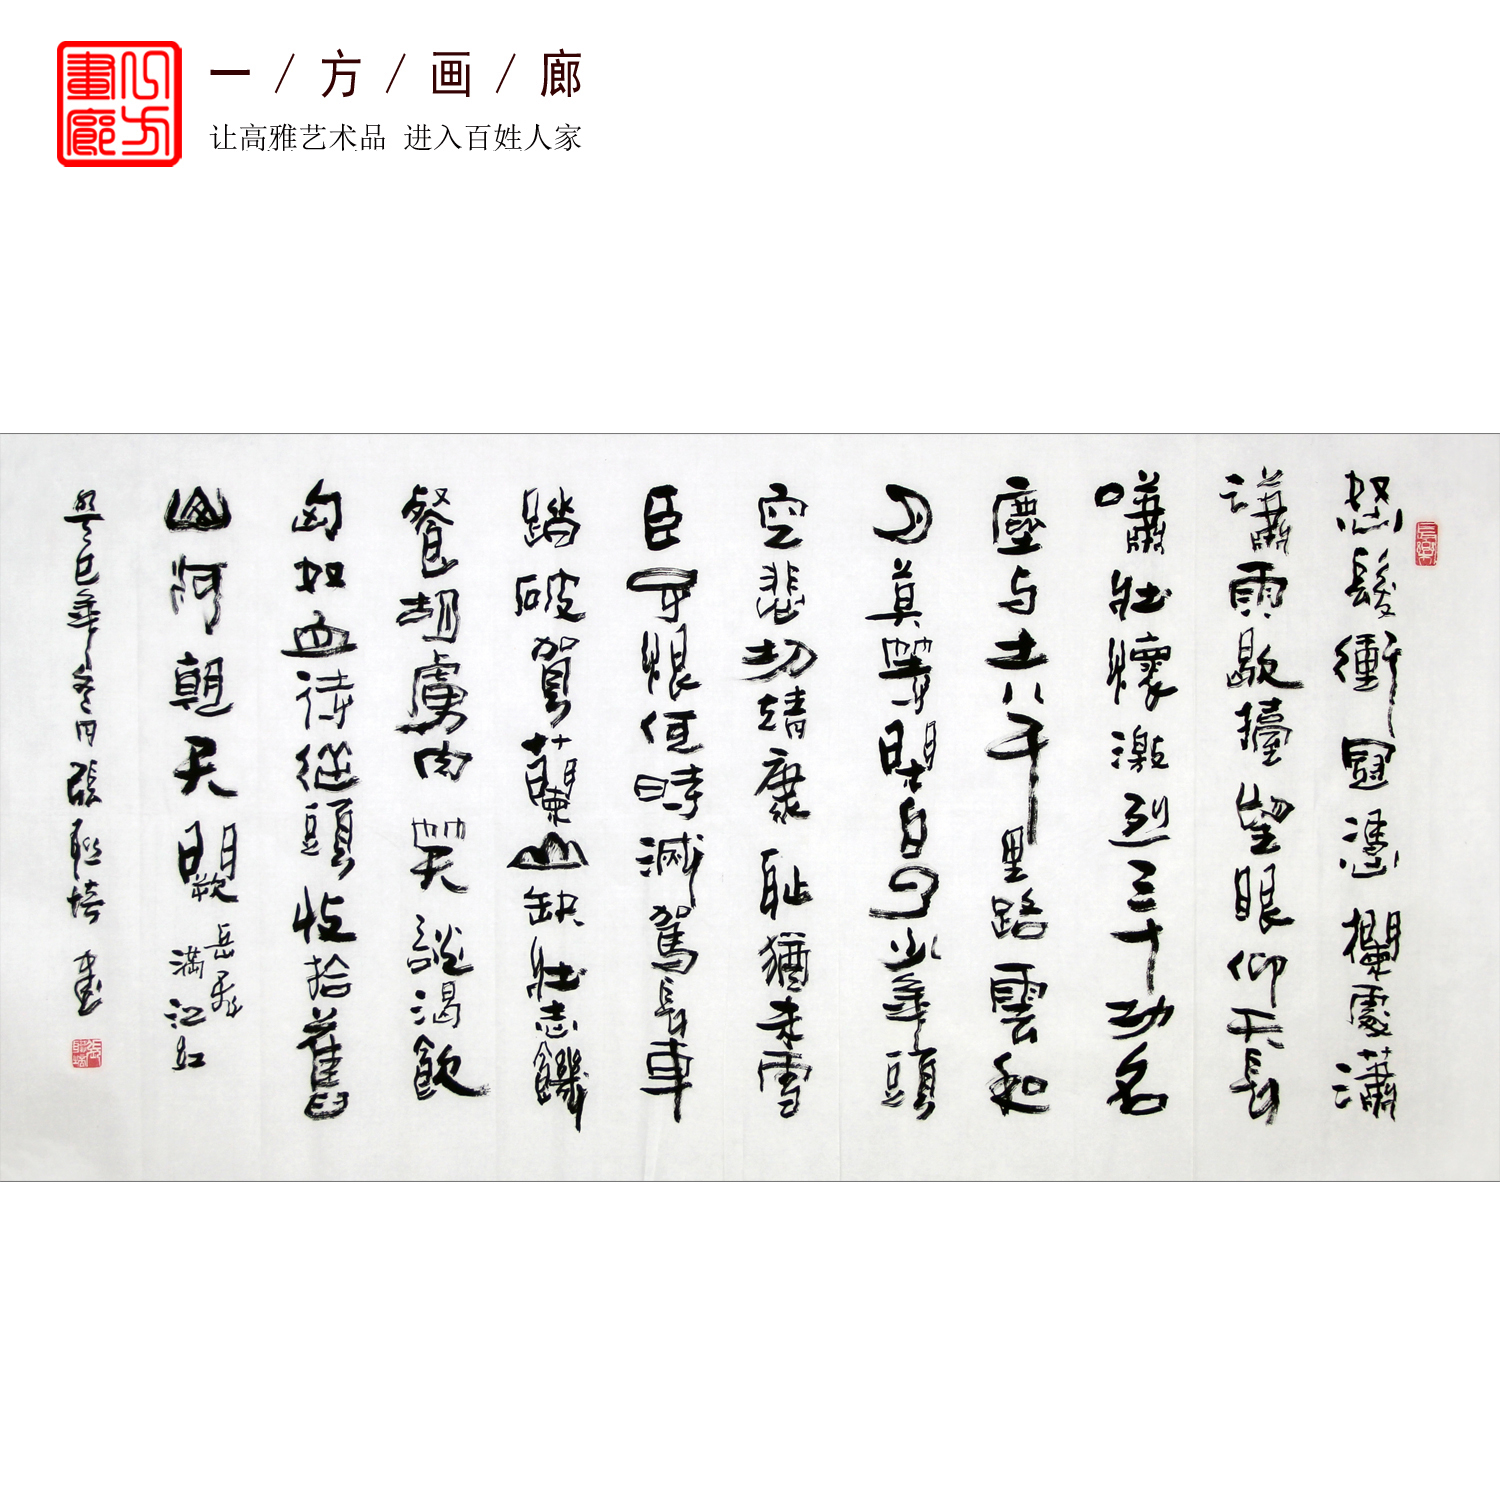 一/方/画/廊
让高雅艺术品 进入百姓人家
怒髮衝冠憑欄處瀟
瀟雨歇擡望眼仰天長
嘯壯懷激烈三十功名
塵与土八千里路雲和
月莫等閑白了少年頭
空悲切靖康耻猶未雪
臣子恨何時滅駕長車
踏破賀蘭山缺壯志饑
餐胡虜肉笑談渴飲
匈奴血待從頭收拾舊
山河朝天闕
岳飛
滿江紅
癸巳年冬月張聯培書